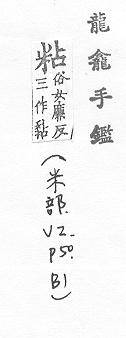 龍龕手鑑
粘俗女廉反
三作黏
(米部.
V2-
P50.
B1)